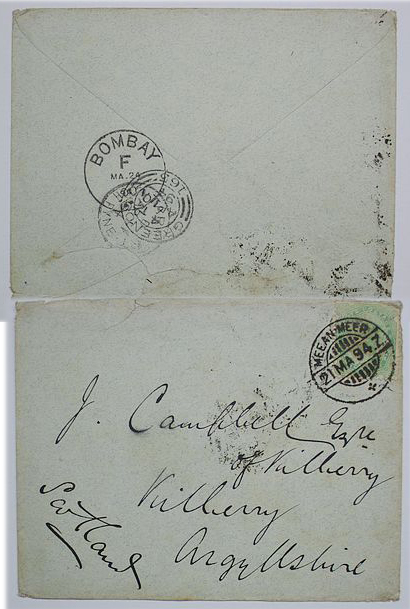 BOMBAY
F
MA.24
163
GREENOCK
MEEAN-MEER
21 MA 94.7
J. Campbell Esqre
of Kilberry
Kilberry
Argyllshire
Scotland